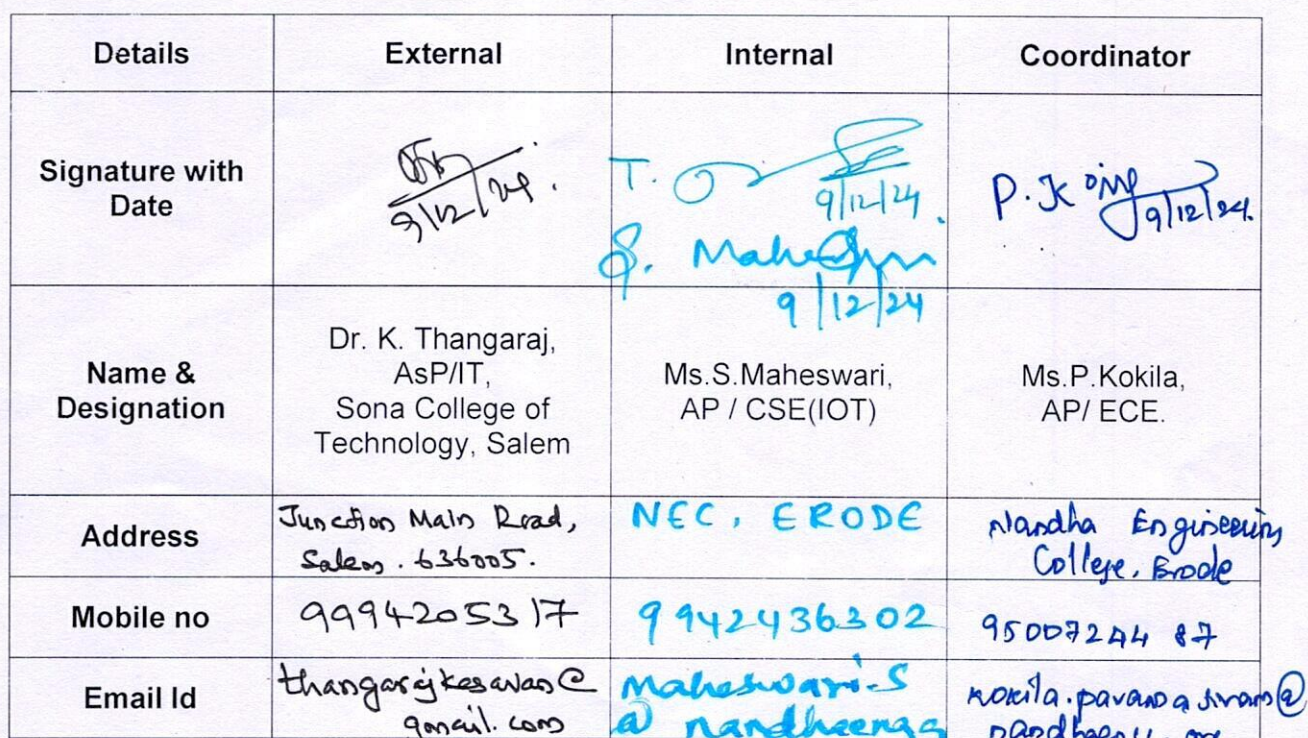 Details External Internal Coordinator
Signature with
Date
9/12/24.
T.
9/12/24.
S. Maheshwari
9/12/24
P. K
9/12/24.
Name &
Designation
Dr. K. Thangaraj,
AsP/IT,
Sona College of
Technology, Salem
Ms.S.Maheswari,
AP / CSE(IOT)
Ms.P.Kokila,
AP/ ECE.
Address
Junction Main Road,
Salem. 636005.
NEC, ERODE
Nandha Engineering
College, Erode
Mobile no 9994205317 9942436302 9500724487
Email Id
thangarajkesavan@
gmail.com
Maheswari.S
@ nandhaengg
kokila.pavanasivam@